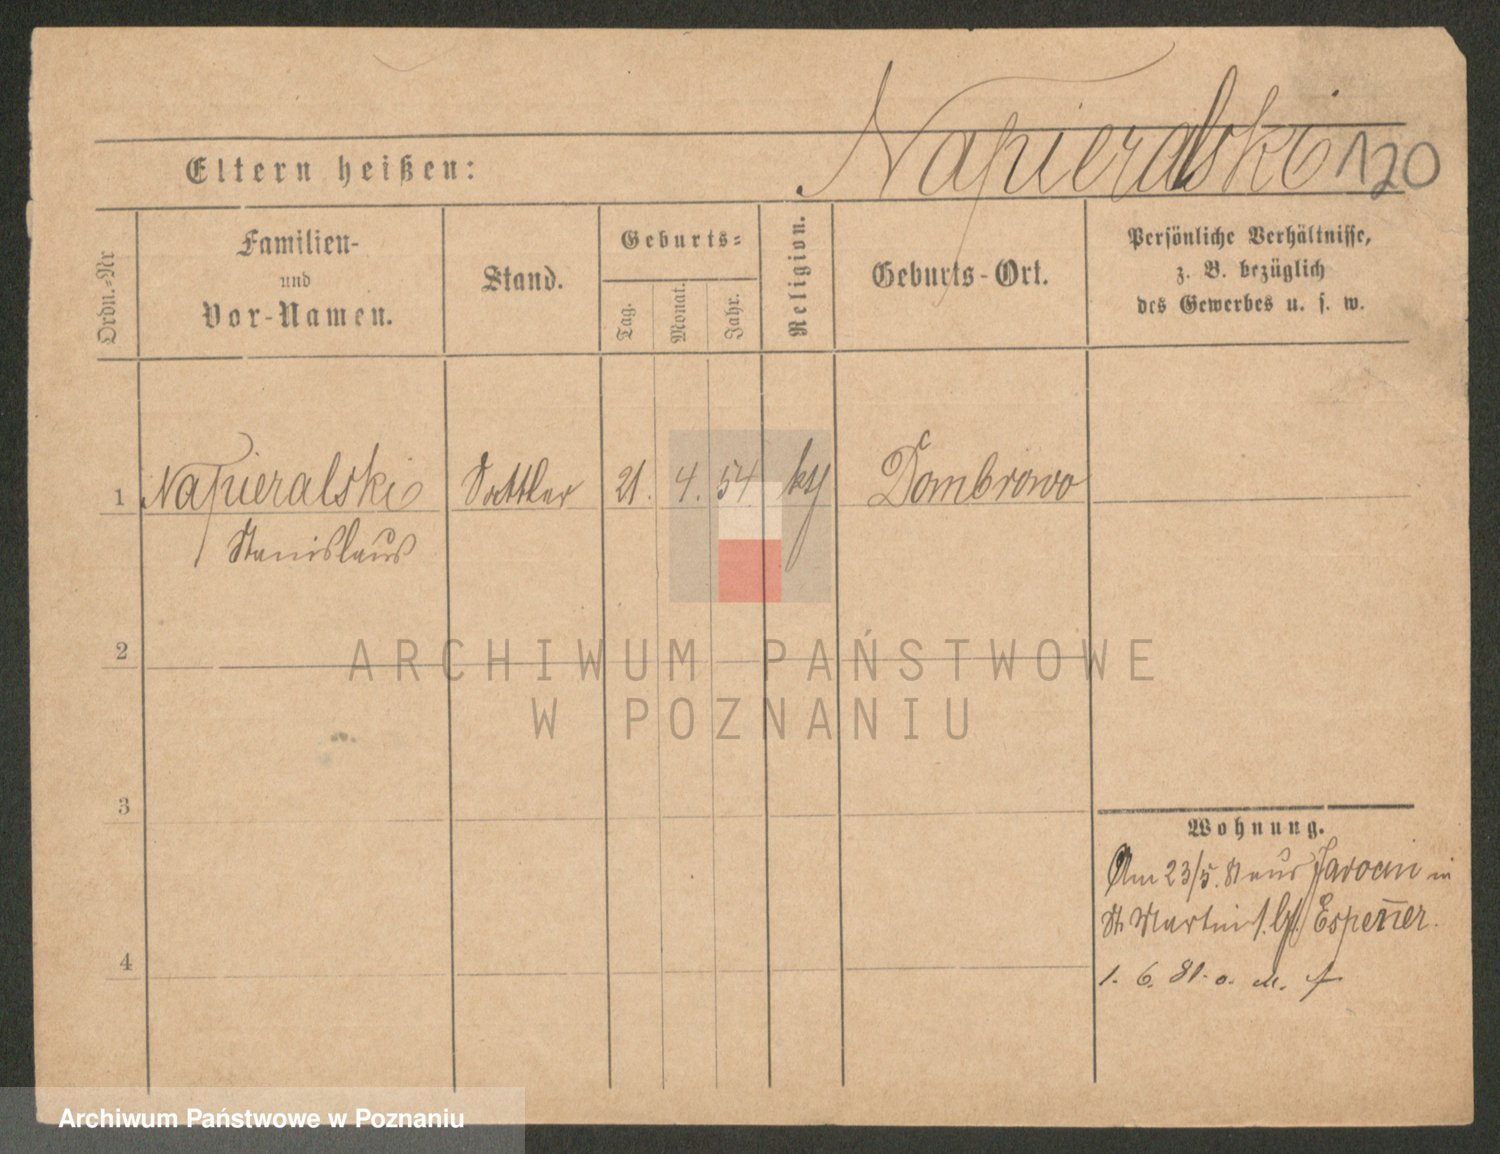 Napieralski
120
Eltern heißen:
Ordn.-Nr
Familien-
und
Vor-Namen.
Stand.
Geburts-
Tag.
Monat.
Jahr.
Religion.
Geburts-Ort.
Persönliche Verhältnisse,
z. B. bezüglich
des Gewerbes u. s. w.
1 Napieralski Sattler 21. 4. 54 Dombrowo
Stanislaus
2
3
4
Wohnung.
Am 23/5. 81 aus Jarocin in
St. Martin Espenner.
1. 6. 81. o.
ARCHIWUM PAŃSTWOWE
W POZNANIU
Archiwum Państwowe w Poznaniu